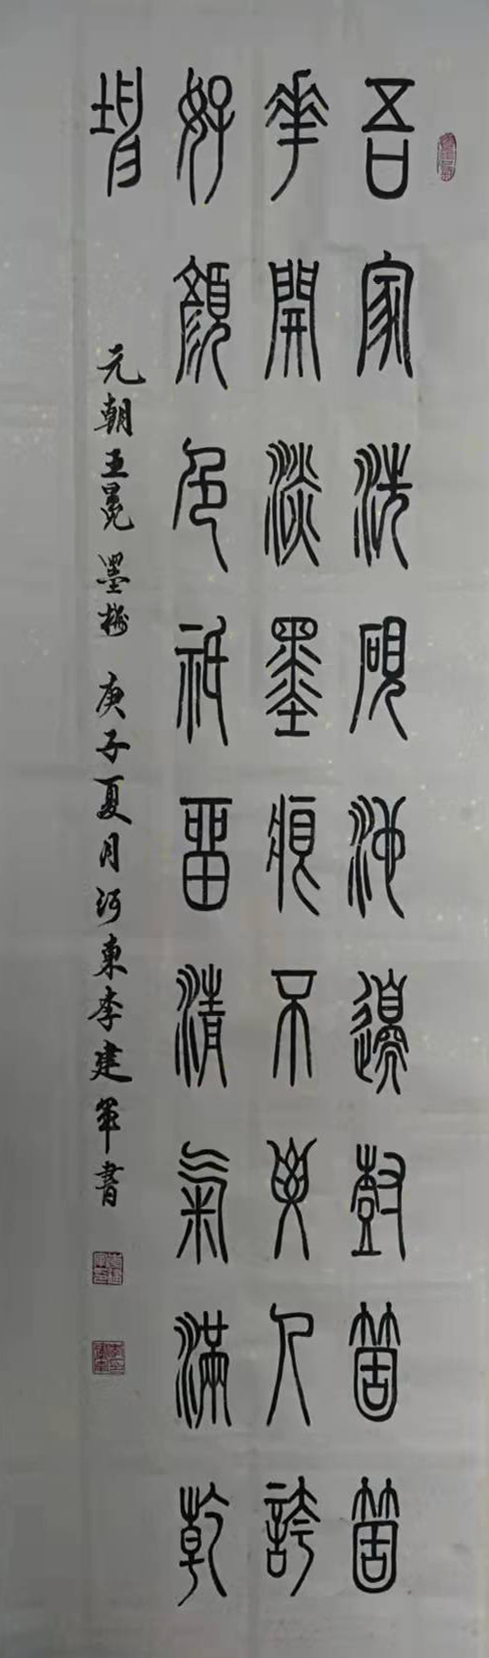 吾家洗硯池邊尌箇箇
華開淡墨痕不要人誇
好顏色祇留清氣滿乾
坤
元朝王冕墨梅 庚子夏月河東李建軍書